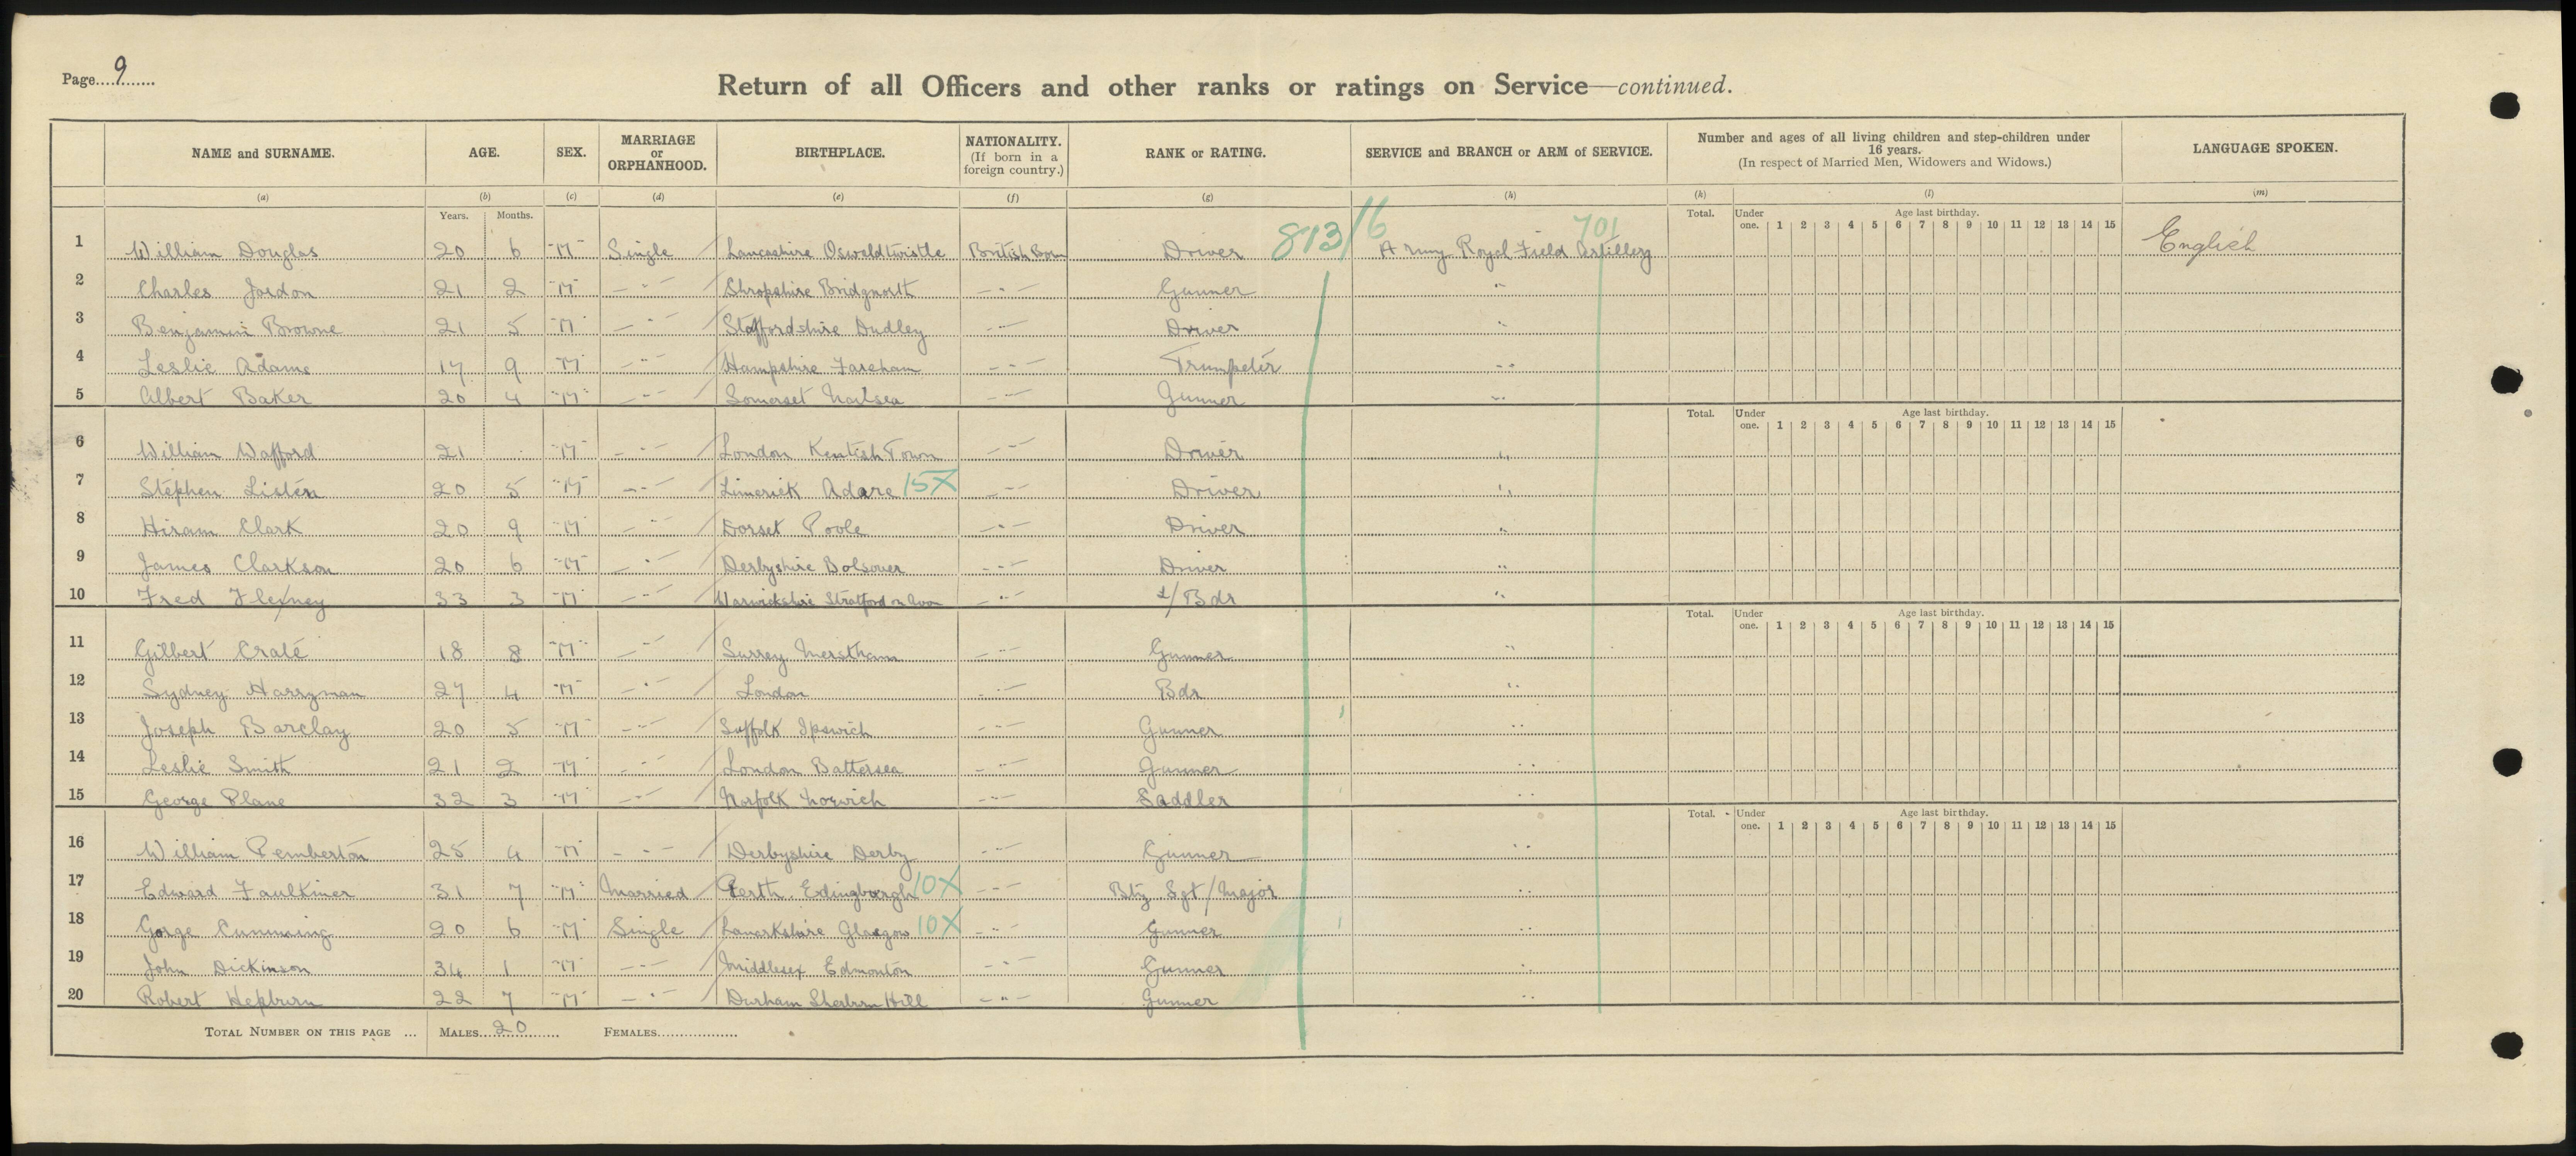 Page....9............
Return of all Officers and other ranks or ratings on Service—continued.
NAME and SURNAME. AGE. SEX. MARRIAGE or ORPHANHOOD. BIRTHPLACE. NATIONALITY. (If born in a foreign country.) RANK or RATING. SERVICE and BRANCH or ARM of SERVICE. Number and ages of all living children and step-children under 16 years. (In respect of Married Men, Widowers and Widows.) LANGUAGE SPOKEN.
(a) (b) (c) (d) (e) (f) (g) (h) (k) (l) (m)
Years. Months. 813/6 701 Total. Under one. Age last birthday. 1 2 3 4 5 6 7 8 9 10 11 12 13 14 15
1 William Douglas 20 6 M Single Lancashire Oswaldtwistle British Born Driver Army Royal Field Artillery English
2 Charles Jordon 21 2 M — " — Shropshire Bridgnorth — " — Gunner "
3 Benjamin Browne 21 5 M — " — Staffordshire Dudley — " — Driver "
4 Leslie Adams 17 9 M — " — Hampshire Fareham — " — Trumpeter "
5 Albert Baker 20 4 M — " — Somerset Nailsea — " — Gunner "
Total. Under one. Age last birthday. 1 2 3 4 5 6 7 8 9 10 11 12 13 14 15
6 William Wafford 21 M — " — London Kentish Town — " — Driver "
7 Stephen Listen 20 5 M — " — Limerick Adare 15X — " — Driver "
8 Hiram Clark 20 9 M — " — Dorset Poole — " — Driver "
9 James Clarkson 20 6 M — " — Derbyshire Bolsover — " — Driver "
10 Fred Flexney 33 3 M — " — Warwickshire Stratford on Avon — " — L/Bdr "
Total. Under one. Age last birthday. 1 2 3 4 5 6 7 8 9 10 11 12 13 14 15
11 Gilbert Crate 18 8 M — " — Surrey Merstham — " — Gunner "
12 Sydney Harryman 27 4 M — " — London — " — Bdr "
13 Joseph Barclay 20 5 M — " — Suffolk Ipswich — " — Gunner "
14 Leslie Smith 21 2 M — " — London Battersea — " — Gunner "
15 George Plane 32 3 M — " — Norfolk Norwich — " — Saddler "
Total. Under one. Age last birthday. 1 2 3 4 5 6 7 8 9 10 11 12 13 14 15
16 William Pemberton 25 4 M — " — Derbyshire Derby — " — Gunner "
17 Edward Faulkiner 31 7 M Married Perth Edingburgh 10X — " — Bty Sgt/Major "
18 Gorge Cumming 20 6 M Single Lanarkshire Glasgow 10X — " — Gunner "
19 John Dickinson 34 1 M — " — Middlesex Edmonton — " — Gunner "
20 Robert Hepburn 22 7 M — " — Durham Sherburn Hill — " — Gunner "
TOTAL NUMBER ON THIS PAGE ... MALES....20......... FEMALES..................